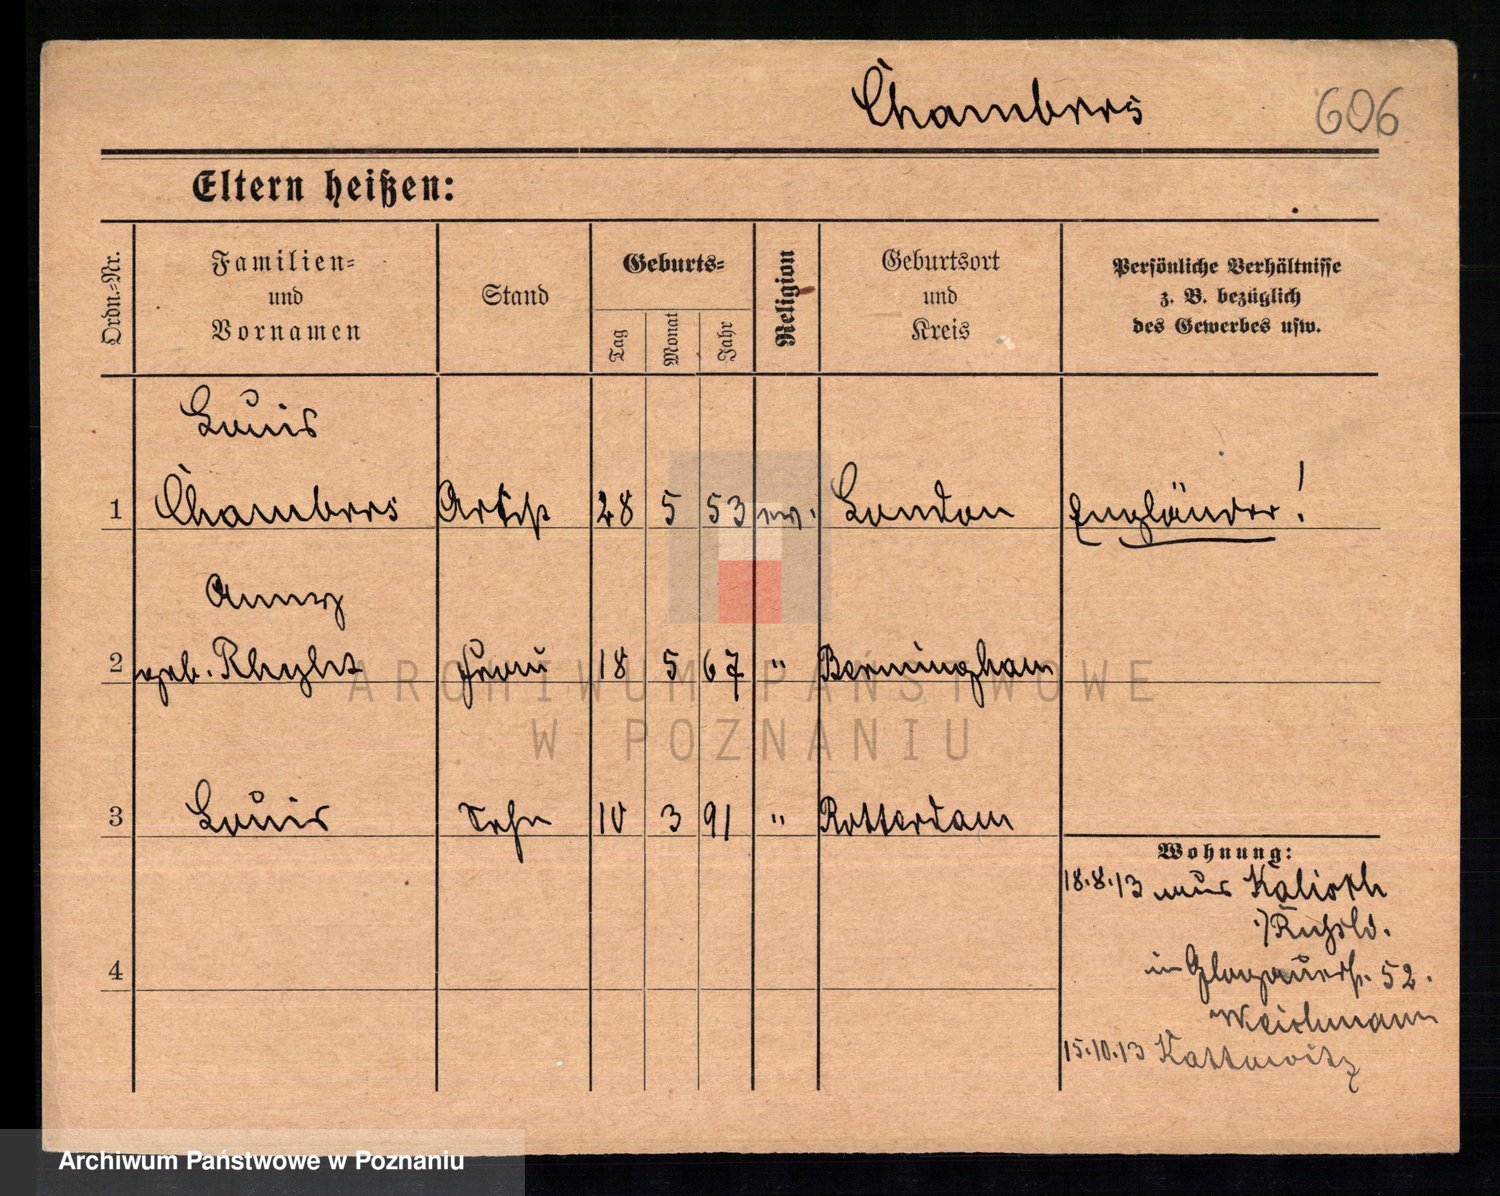 Chambers
606
Eltern heißen:
Ordn.-Nr.
Familien-
und
Vornamen
Stand
Geburts-
Tag
Monat
Jahr
Religion
Geburtsort
und
Kreis
Persönliche Verhältnisse
z. B. bezüglich
des Gewerbes usw.
Louis
1 Chambers Artist 28 5 53 ev. London Engländer!
Anny
2 geb. Frau 18 5 67 " Bermingham
3 Louis Sohn 10 3 91 " Rotterdam
Wohnung:
18.8.13 aus Kalisch
i/Rußld.
4
in Glogauerstr. 52.
Weichmann
15.10.13 Kattowitz
ARCHIWUM PAŃSTWOWE
W POZNANIU
Archiwum Państwowe w Poznaniu